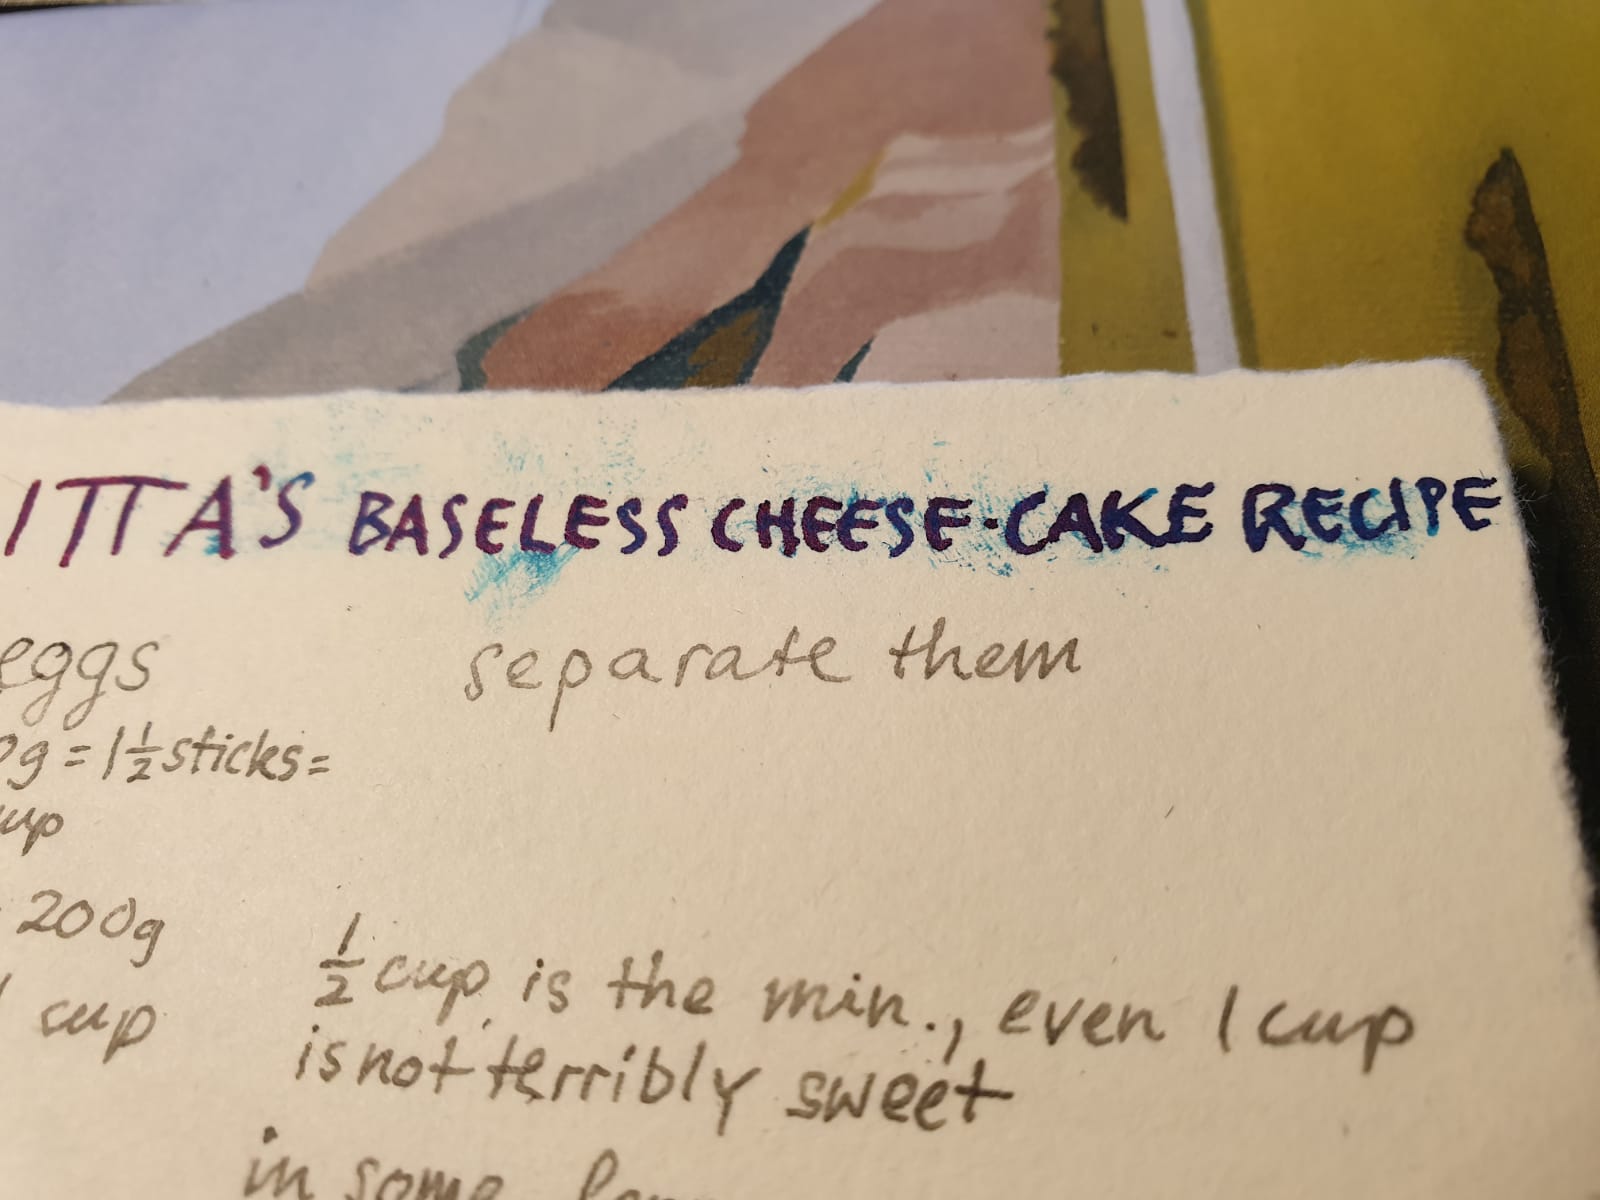 ITTA'S BASELESS CHEESE-CAKE RECIPE
eggs separate them
0g = 1½ sticks =
cup
200g
½ cup is the min., even 1 cup
cup
is not terribly sweet
in some